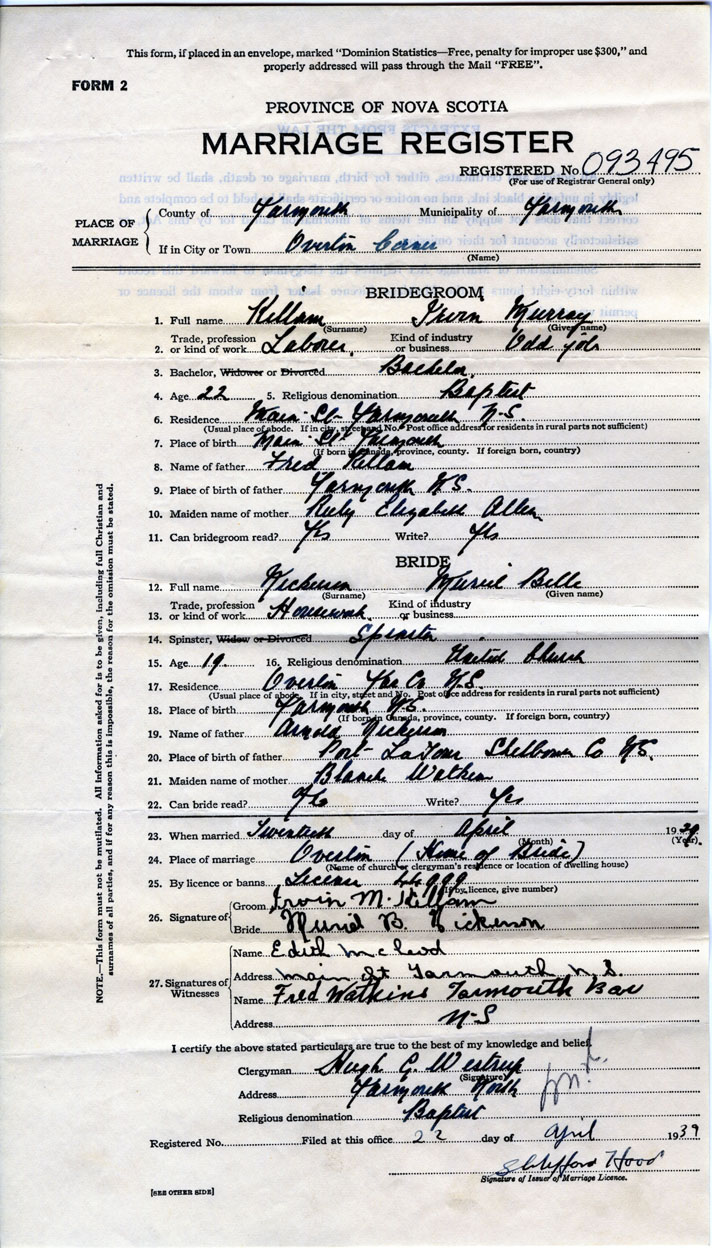 This form, if placed in an envelope, marked "Dominion Statistics—Free, penalty for improper use $300," and
properly addressed will pass through the Mail "FREE".
FORM 2
PROVINCE OF NOVA SCOTIA
MARRIAGE REGISTER
REGISTERED No. 093495
(For use of Registrar General only)
PLACE OF MARRIAGE
County of Yarmouth Municipality of Yarmouth
If in City or Town Overton Corner
(Name)
BRIDEGROOM
1. Full name Killam Irvin Murray
(Surname) (Given name)
2. Trade, profession or kind of work Laborer. Kind of industry or business. Odd job
3. Bachelor, Widower or Divorced Bachelor.
4. Age 22 5. Religious denomination Baptist
6. Residence Main St- Yarmouth N-S
(Usual place of abode. If in city, street and No. Post office address for residents in rural parts not sufficient)
7. Place of birth Main St Yarmouth
(If born in Canada, province, county. If foreign born, country)
8. Name of father Fred Killam
9. Place of birth of father Yarmouth N.S.
10. Maiden name of mother Ruby Elizabeth Allen
11. Can bridegroom read? Yes Write? Yes
BRIDE
12. Full name Nickerson Muriel Belle
(Surname) (Given name)
13. Trade, profession or kind of work Housework. Kind of industry or business
14. Spinster, Widow or Divorced Spinster
15. Age 19. 16. Religious denomination United Church
17. Residence Overton Yar Co N.S.
(Usual place of abode. If in city, street and No. Post office address for residents in rural parts not sufficient)
18. Place of birth Yarmouth N.S.
(If born in Canada, province, county. If foreign born, country)
19. Name of father Arnold Nickerson
20. Place of birth of father Port- LaTour Shelburne Co N.S.
21. Maiden name of mother Blanch Watkins
22. Can bride read? Yes Write? Yes
23. When married Twentieth day of April 1939.
(Month) (Year)
24. Place of marriage Overton (Home of Bride)
(Name of church or clergyman's residence or location of dwelling house)
25. By licence or banns License
(If by licence, give number)
26. Signature of Groom Irvin M. Killam
Bride Muriel B. Nickerson
27. Signatures of Witnesses
Name Edith McLeod
Address Main St Yarmouth N.S.
Name Fred Watkins Yarmouth Bar
Address N-S
I certify the above stated particulars are true to the best of my knowledge and belief.
Clergyman Hugh G. Westrup
(Signature)
Address Yarmouth North
Religious denomination Baptist
Registered No. Filed at this office 22 day of April 1939
Hood
Signature of Issuer of Marriage Licence.
[SEE OTHER SIDE]
NOTE.—This form must not be mutilated. All information asked for is to be given, including full Christian and
surnames of all parties, and if for any reason this is impossible, the reason for the omission must be stated.